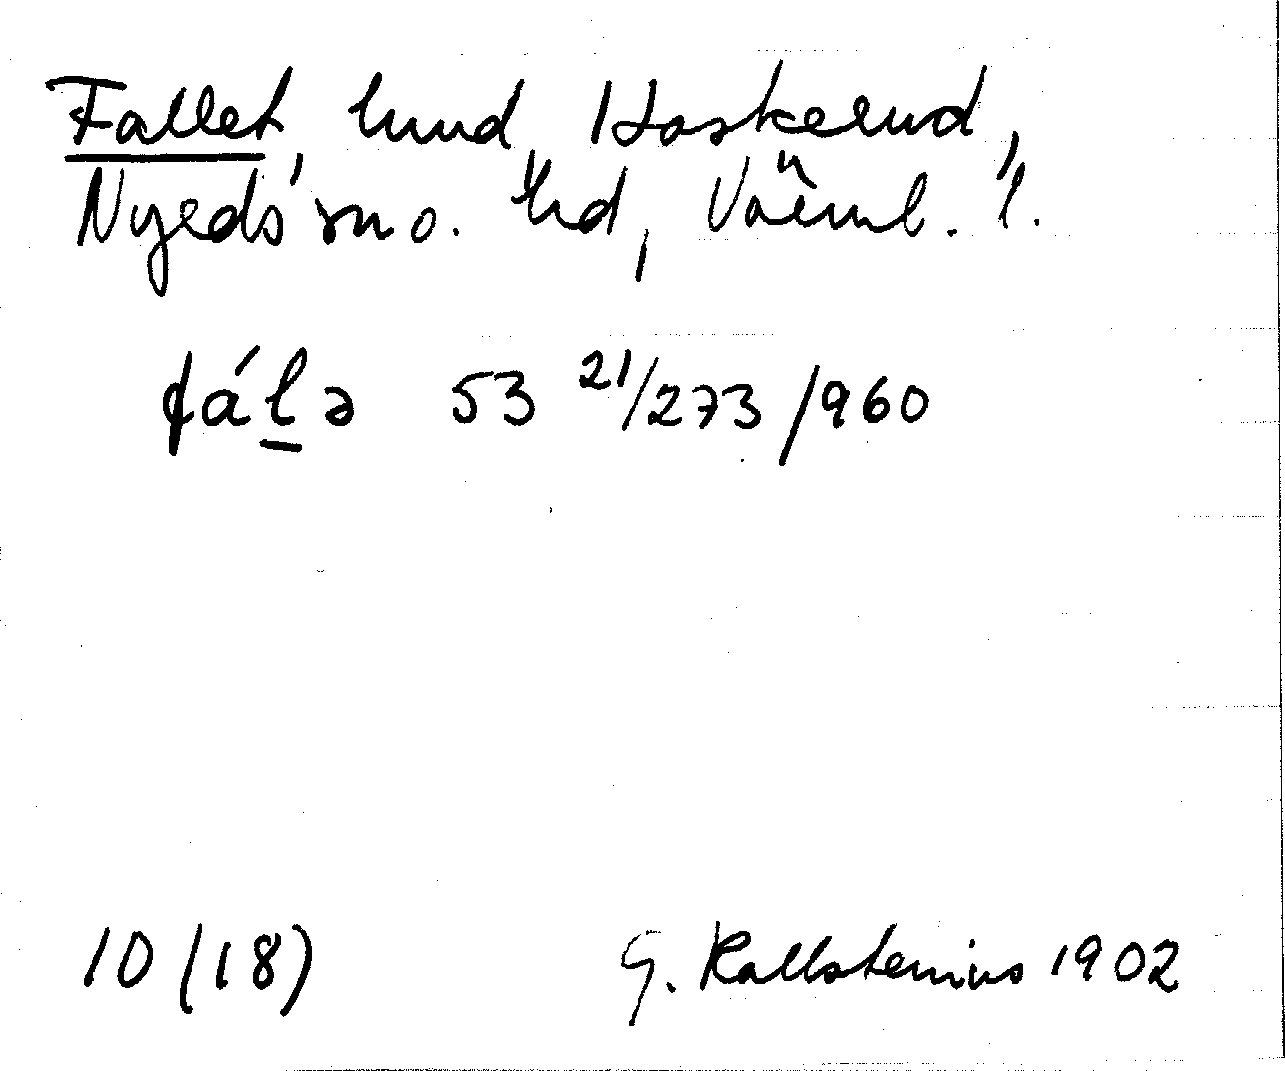 Fallet, lund, Haskerud,
Nyeds sn o. hd, Värml. l.
fáḻə 53 21/273/960
10 (18) G. Kallstenius 1902